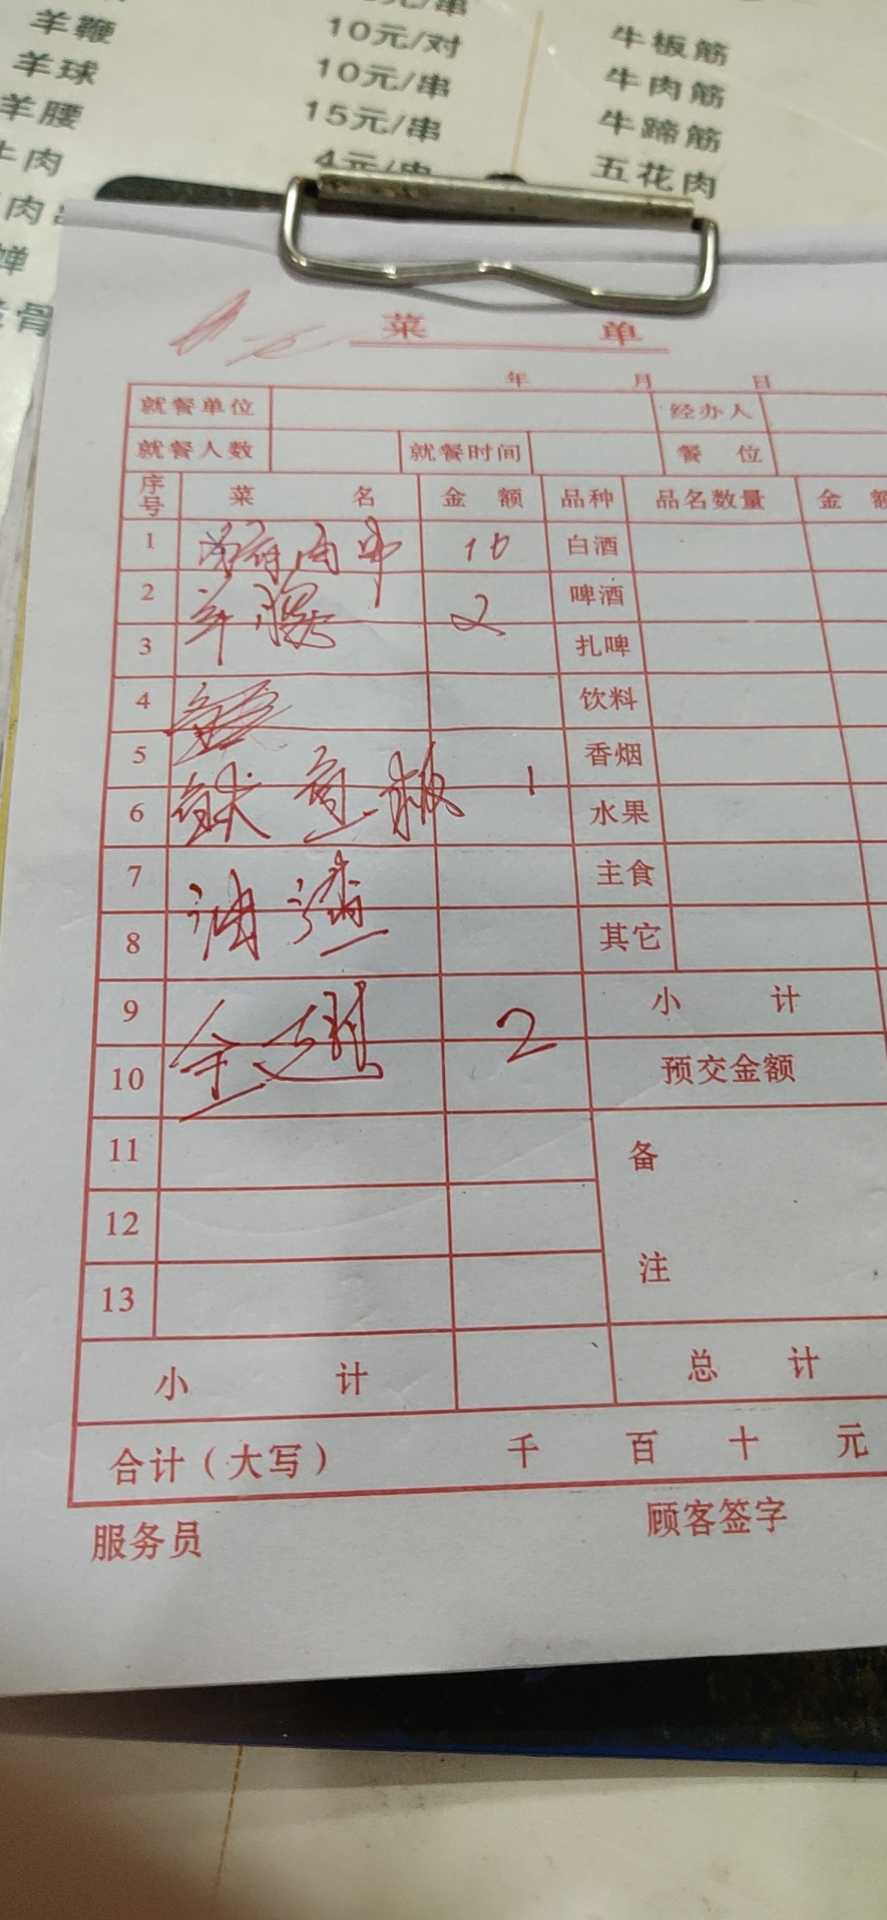 元/串
羊鞭 10元/对 牛板筋
羊球 10元/串 牛肉筋
羊腰 15元/串 牛蹄筋
牛肉 4元/串 五花肉
肉
蝉
骨
菜 单
年 月 日
就餐单位 经办人
就餐人数 就餐时间 餐 位
序号 菜 名 金 额 品种 品名数量 金 额
1 肉串 10 白酒
2 羊腰 2 啤酒
3 扎啤
4 饮料
5 香烟
鱿鱼板 1
6 水果
7 主食
油渣
8 其它
9 小 计
全翅 2
10 预交金额
11 备
12
注
13
小 计 总 计
合计(大写) 千 百 十 元
服务员 顾客签字